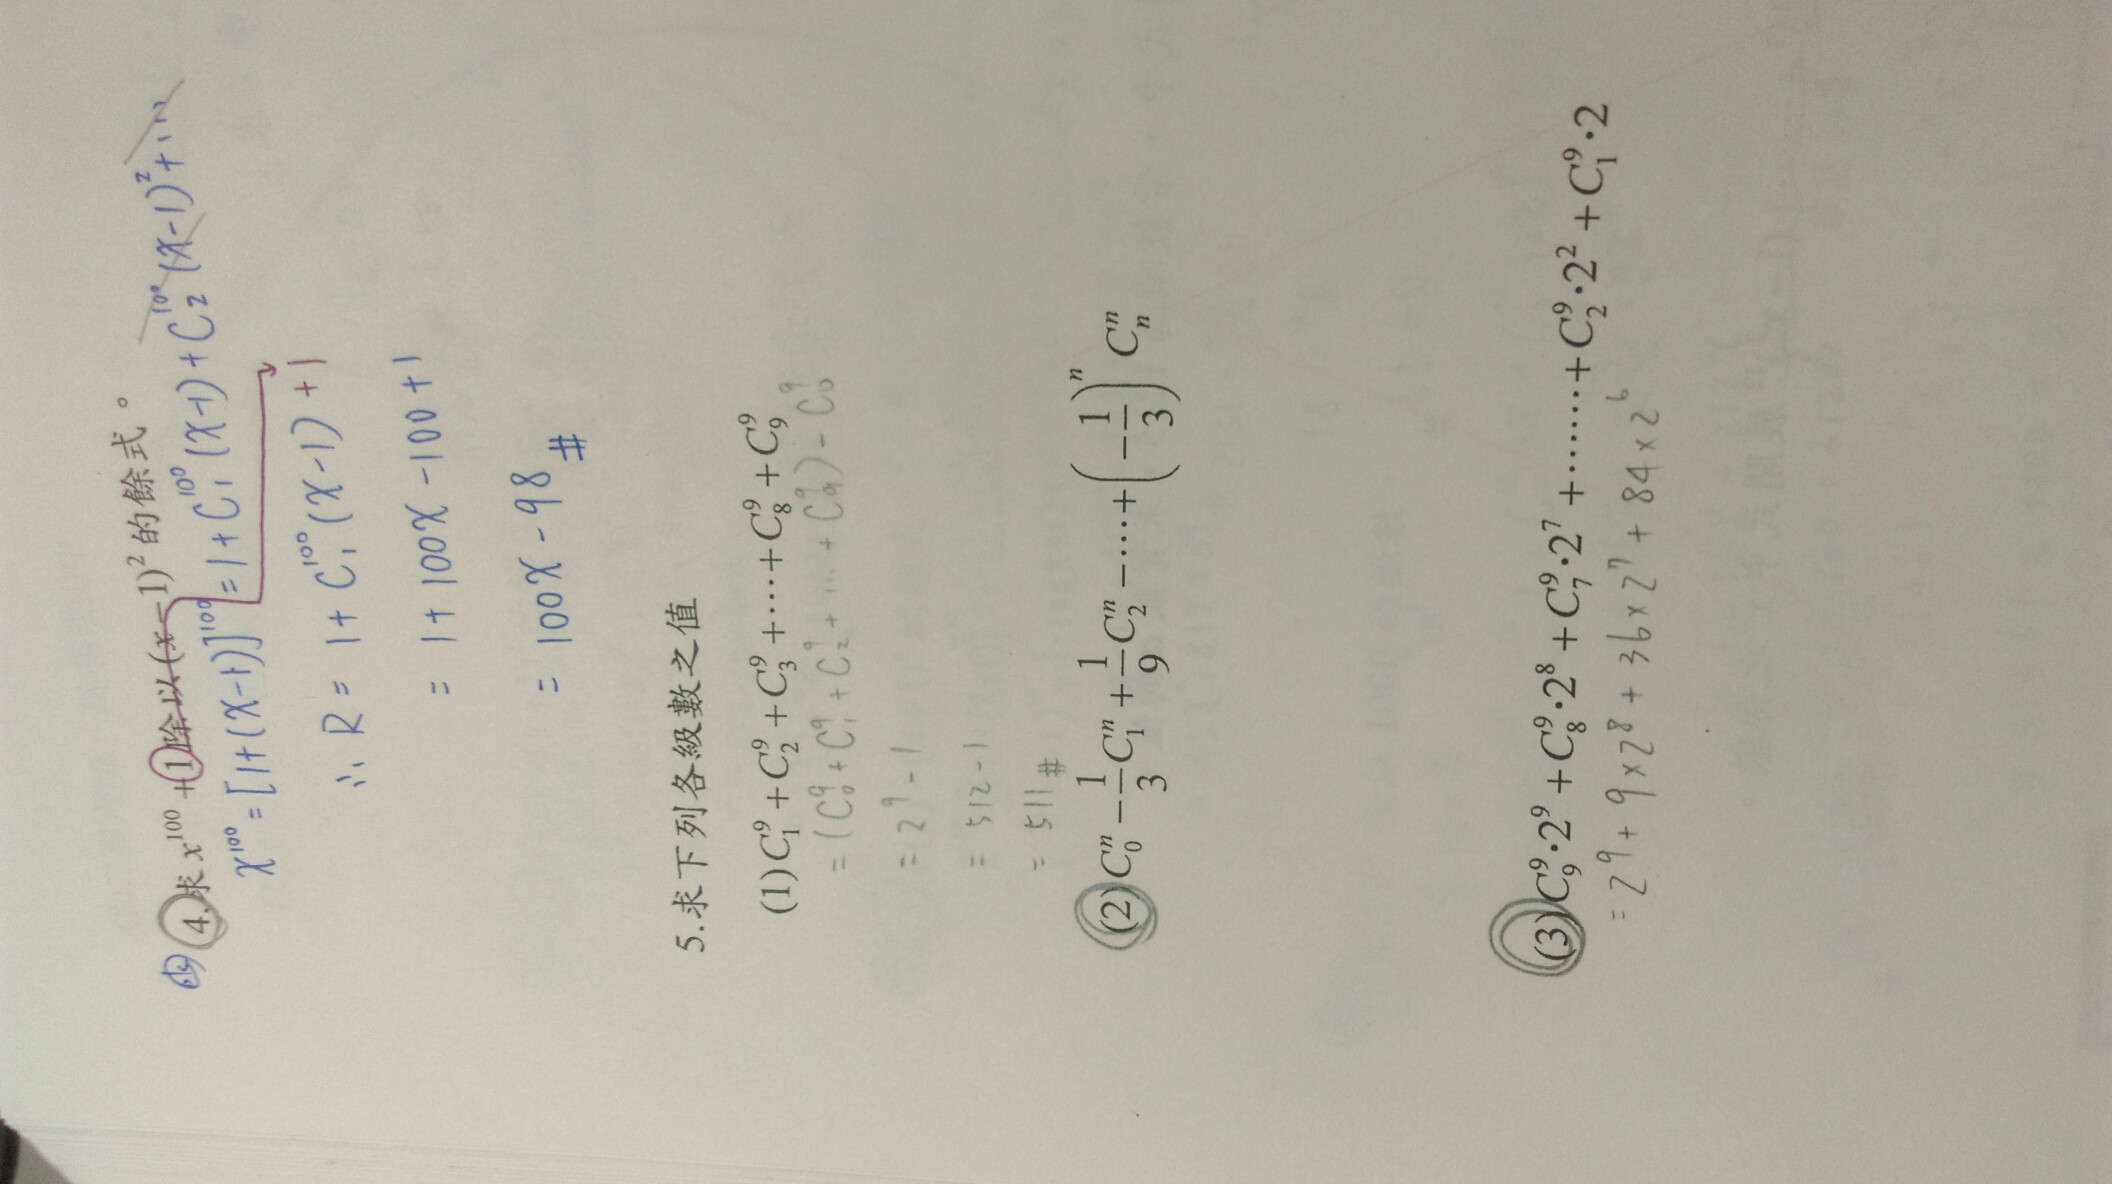 4.求 x¹⁰⁰+1除以(x−1)²的餘式。
x¹⁰⁰ = [1+(x-1)]¹⁰⁰ = 1+C₁¹⁰⁰(x-1)+C₂¹⁰⁰(x-1)²+...
∴ R = 1+C₁¹⁰⁰(x-1)+1
= 1+100x-100+1
= 100x-98 #
5.求下列各級數之值
(1)C₁⁹+C₂⁹+C₃⁹+⋯⋯+C₈⁹+C₉⁹
= (C₀⁹+C₁⁹+C₂⁹+...+C₉⁹)-C₀⁹
= 2⁹-1
= 512-1
= 511 #
(2)C₀ⁿ−1/3C₁ⁿ+1/9C₂ⁿ−⋯⋯+(−1/3)ⁿCₙⁿ
(3)C₉⁹·2⁹+C₈⁹·2⁸+C₇⁹·2⁷+⋯⋯+C₂⁹·2²+C₁⁹·2
= 2⁹+9×2⁸+36×2⁷+84×2⁶